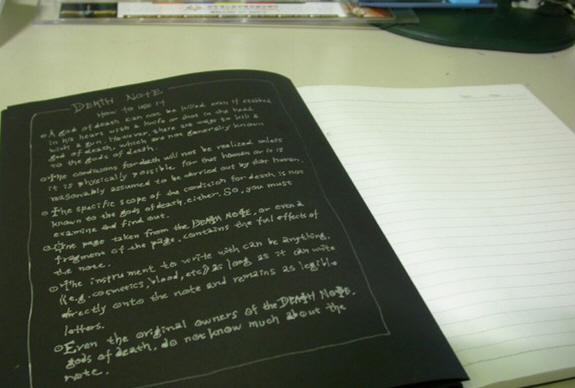 DEATH NOTE
HOW TO USE IT
A god of death can not be killed even if stabbed
in his heart with a knife or shot in the head
with a gun. However, there are ways to kill a
god of death, which are not generally known
to the gods of death.
The conditions for death will not be realized unless
it is physically possible for that human or it is
reasonably assumed to be carried out by that human.
The specific scope of the condition for death is not
known to the gods of death, either. So, you must
examine and find out.
One page taken from the DEATH NOTE, or even a
fragment of the page, contains the full effects of
the note.
The instrument to write with can be anything,
(e.g. cosmetics, blood, etc) as long as it can write
directly onto the note and remains as legible
letters.
Even the original owners of the DEATH NOTE,
gods of death, do not know much about the
note.